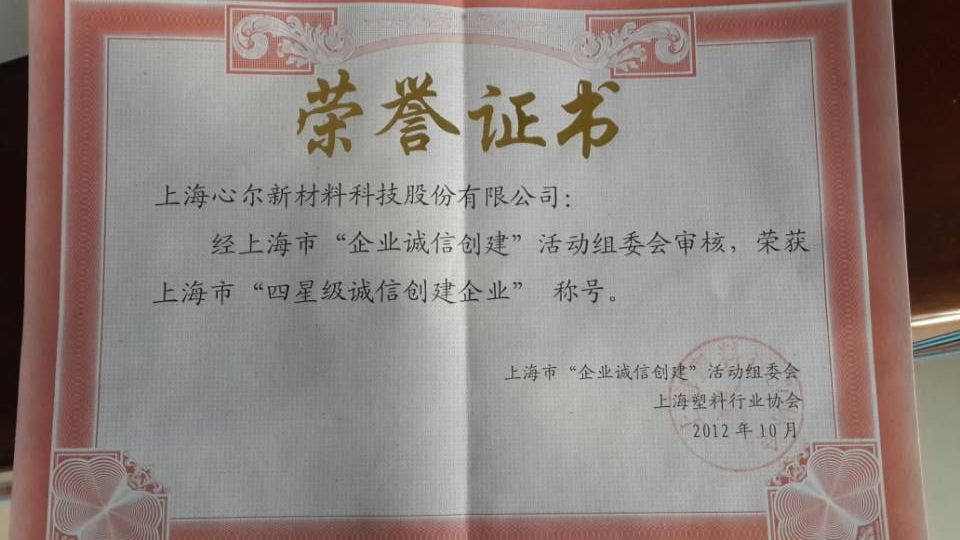 荣誉证书
上海心尔新材料科技股份有限公司：
经上海市“企业诚信创建”活动组委会审核，荣获
上海市“四星级诚信创建企业” 称号。
上海市“企业诚信创建”活动组委会
上海塑料行业协会
2012 年 10 月